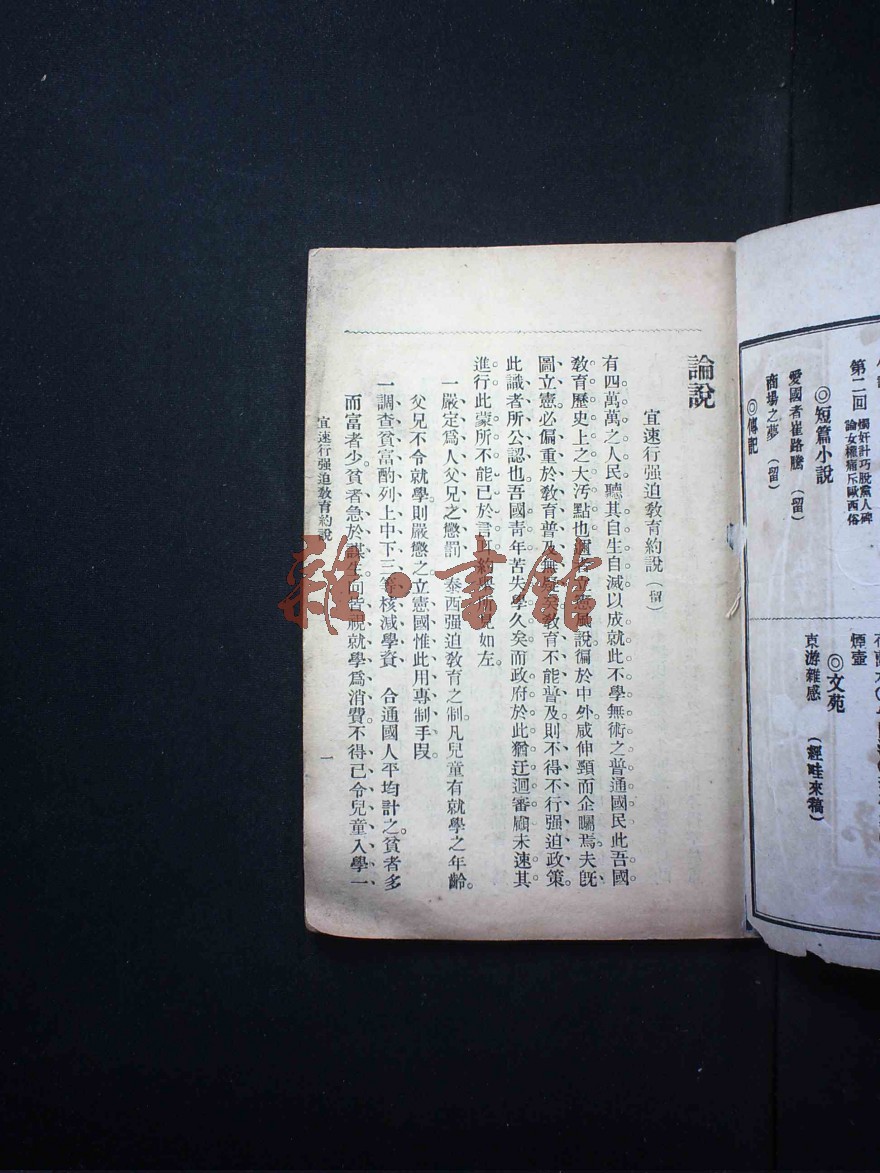 第二回
燭奸計巧脫黨人碑
論女權痛斥歐西俗
◎短篇小說
愛國者崔路騰 (留)
商場之夢 (留)
◎傳記
煙壺
◎文苑
東游雜感 (經畦來稿)
論說
宜速行强迫敎育約說 (留)
有四萬萬之人民聽其自生自滅以成就此不學無術之普通國民此吾國
敎育歷史上之大汚點也邇者立憲風說徧於中外咸伸頸而企囑焉夫旣
圖立憲必偏重於敎育普及無疑矣敎育不能普及則不得不行强迫政策
此識者所公認也吾國靑年苦失學久矣而政府於此猶迂迴審顧未速其
進行此蒙所不能已於言也約舉所見如左
一嚴定爲人父兄之懲罰 泰西强迫敎育之制凡兒童有就學之年齡
父兄不令就學則嚴懲之立憲國惟此用專制手段
一調查貧富酌列上中下三等核減學資 合通國人平均計之貧者多
而富者少貧者急於謀生向皆視就學爲消費不得已令兒童入學一
宜速行强迫敎育約說
一
雜·書館